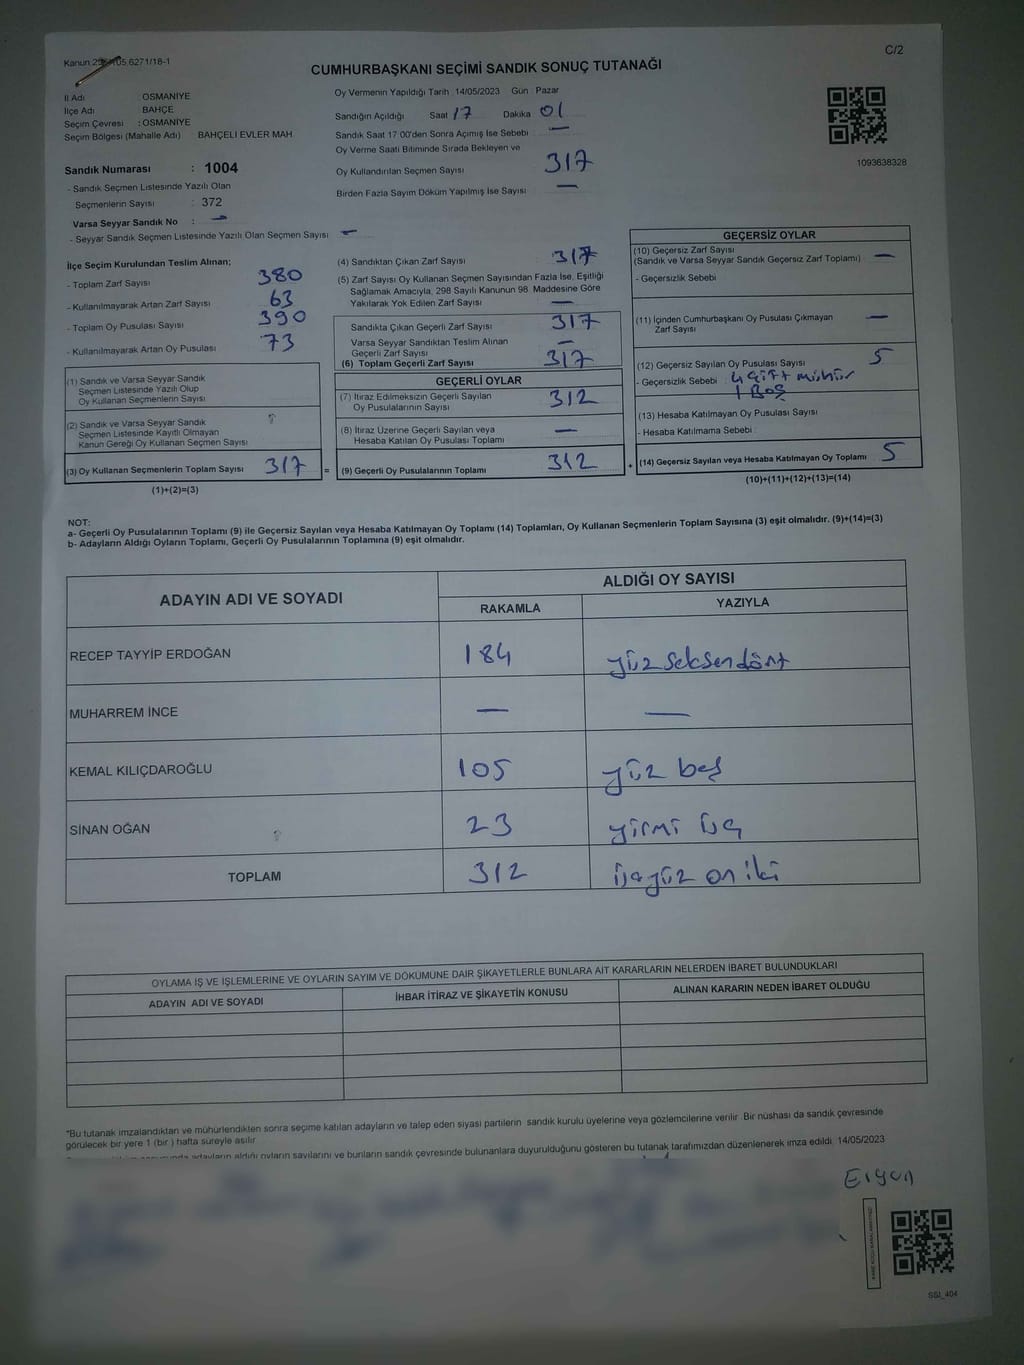 C/2
CUMHURBAŞKANI SEÇİMİ SANDIK SONUÇ TUTANAĞI
İl Adı OSMANİYE
İlçe Adı BAHÇE
Seçim Çevresi : OSMANİYE
Seçim Bölgesi (Mahalle Adı) BAHÇELİ EVLER MAH.
Sandık Numarası : 1004
- Sandık Seçmen Listesinde Yazılı Olan
Seçmenlerin Sayısı : 372
Varsa Seyyar Sandık No : —
- Seyyar Sandık Seçmen Listesinde Yazılı Olan Seçmen Sayısı —
Oy Vermenin Yapıldığı Tarih 14/05/2023 Gün Pazar
Sandığın Açıldığı Saat 17 Dakika 01
Sandık Saat 17:00'den Sonra Açılmış İse Sebebi —
Oy Verme Saati Bitiminde Sırada Bekleyen ve
Oy Kullandırılan Seçmen Sayısı 317
Birden Fazla Sayım Döküm Yapılmış İse Sayısı —
1093638328
İlçe Seçim Kurulundan Teslim Alınan;
- Toplam Zarf Sayısı 380
- Kullanılmayarak Artan Zarf Sayısı 63
- Toplam Oy Pusulası Sayısı 390
- Kullanılmayarak Artan Oy Pusulası 73
(1) Sandık ve Varsa Seyyar Sandık
Seçmen Listesinde Yazılı Olup
Oy Kullanan Seçmenlerin Sayısı
(2) Sandık ve Varsa Seyyar Sandık
Seçmen Listesinde Kayıtlı Olmayan
Kanun Gereği Oy Kullanan Seçmen Sayısı
(3) Oy Kullanan Seçmenlerin Toplam Sayısı 317
(1)+(2)=(3)
(4) Sandıktan Çıkan Zarf Sayısı 317
(5) Zarf Sayısı Oy Kullanan Seçmen Sayısından Fazla İse, Eşitliği
Sağlamak Amacıyla, 298 Sayılı Kanunun 98. Maddesine Göre
Yakılarak Yok Edilen Zarf Sayısı —
Sandıkta Çıkan Geçerli Zarf Sayısı 317
Varsa Seyyar Sandıktan Teslim Alınan
Geçerli Zarf Sayısı —
(6) Toplam Geçerli Zarf Sayısı 317
GEÇERLİ OYLAR
(7) İtiraz Edilmeksizin Geçerli Sayılan
Oy Pusulalarının Sayısı 312
(8) İtiraz Üzerine Geçerli Sayılan veya
Hesaba Katılan Oy Pusulası Toplamı —
= (9) Geçerli Oy Pusulalarının Toplamı 312
GEÇERSİZ OYLAR
(10) Geçersiz Zarf Sayısı
(Sandık ve Varsa Seyyar Sandık Geçersiz Zarf Toplamı) —
- Geçersizlik Sebebi
(11) İçinden Cumhurbaşkanı Oy Pusulası Çıkmayan
Zarf Sayısı —
(12) Geçersiz Sayılan Oy Pusulası Sayısı 5
- Geçersizlik Sebebi : 4 çift mühür
1 Boş
(13) Hesaba Katılmayan Oy Pusulası Sayısı
- Hesaba Katılmama Sebebi
+ (14) Geçersiz Sayılan veya Hesaba Katılmayan Oy Toplamı 5
(10)+(11)+(12)+(13)=(14)
NOT:
a- Geçerli Oy Pusulalarının Toplamı (9) ile Geçersiz Sayılan veya Hesaba Katılmayan Oy Toplamı (14) Toplamları, Oy Kullanan Seçmenlerin Toplam Sayısına (3) eşit olmalıdır. (9)+(14)=(3)
b- Adayların Aldığı Oyların Toplamı, Geçerli Oy Pusulalarının Toplamına (9) eşit olmalıdır.
ADAYIN ADI VE SOYADI ALDIĞI OY SAYISI
RAKAMLA YAZIYLA
RECEP TAYYİP ERDOĞAN 184 yüz seksen dört
MUHARREM İNCE — —
KEMAL KILIÇDAROĞLU 105 yüz beş
SİNAN OĞAN 23 yirmi üç
TOPLAM 312 üçyüz on iki
OYLAMA İŞ VE İŞLEMLERİNE VE OYLARIN SAYIM VE DÖKÜMÜNE DAİR ŞİKAYETLERLE BUNLARA AİT KARARLARIN NELERDEN İBARET BULUNDUKLARI
ADAYIN ADI VE SOYADI İHBAR İTİRAZ VE ŞİKAYETİN KONUSU ALINAN KARARIN NEDEN İBARET OLDUĞU
*Bu tutanak imzalandıktan ve mühürlendikten sonra seçime katılan adayların ve talep eden siyasi partilerin sandık kurulu üyelerine veya gözlemcilerine verilir. Bir nüshası da sandık çevresinde
görülecek bir yere 1 (bir ) hafta süreyle asılır.
adayların aldığı oyların sayılarını ve bunların sandık çevresinde bulunanlara duyurulduğunu gösteren bu tutanak tarafımızdan düzenlenerek imza edildi. 14/05/2023